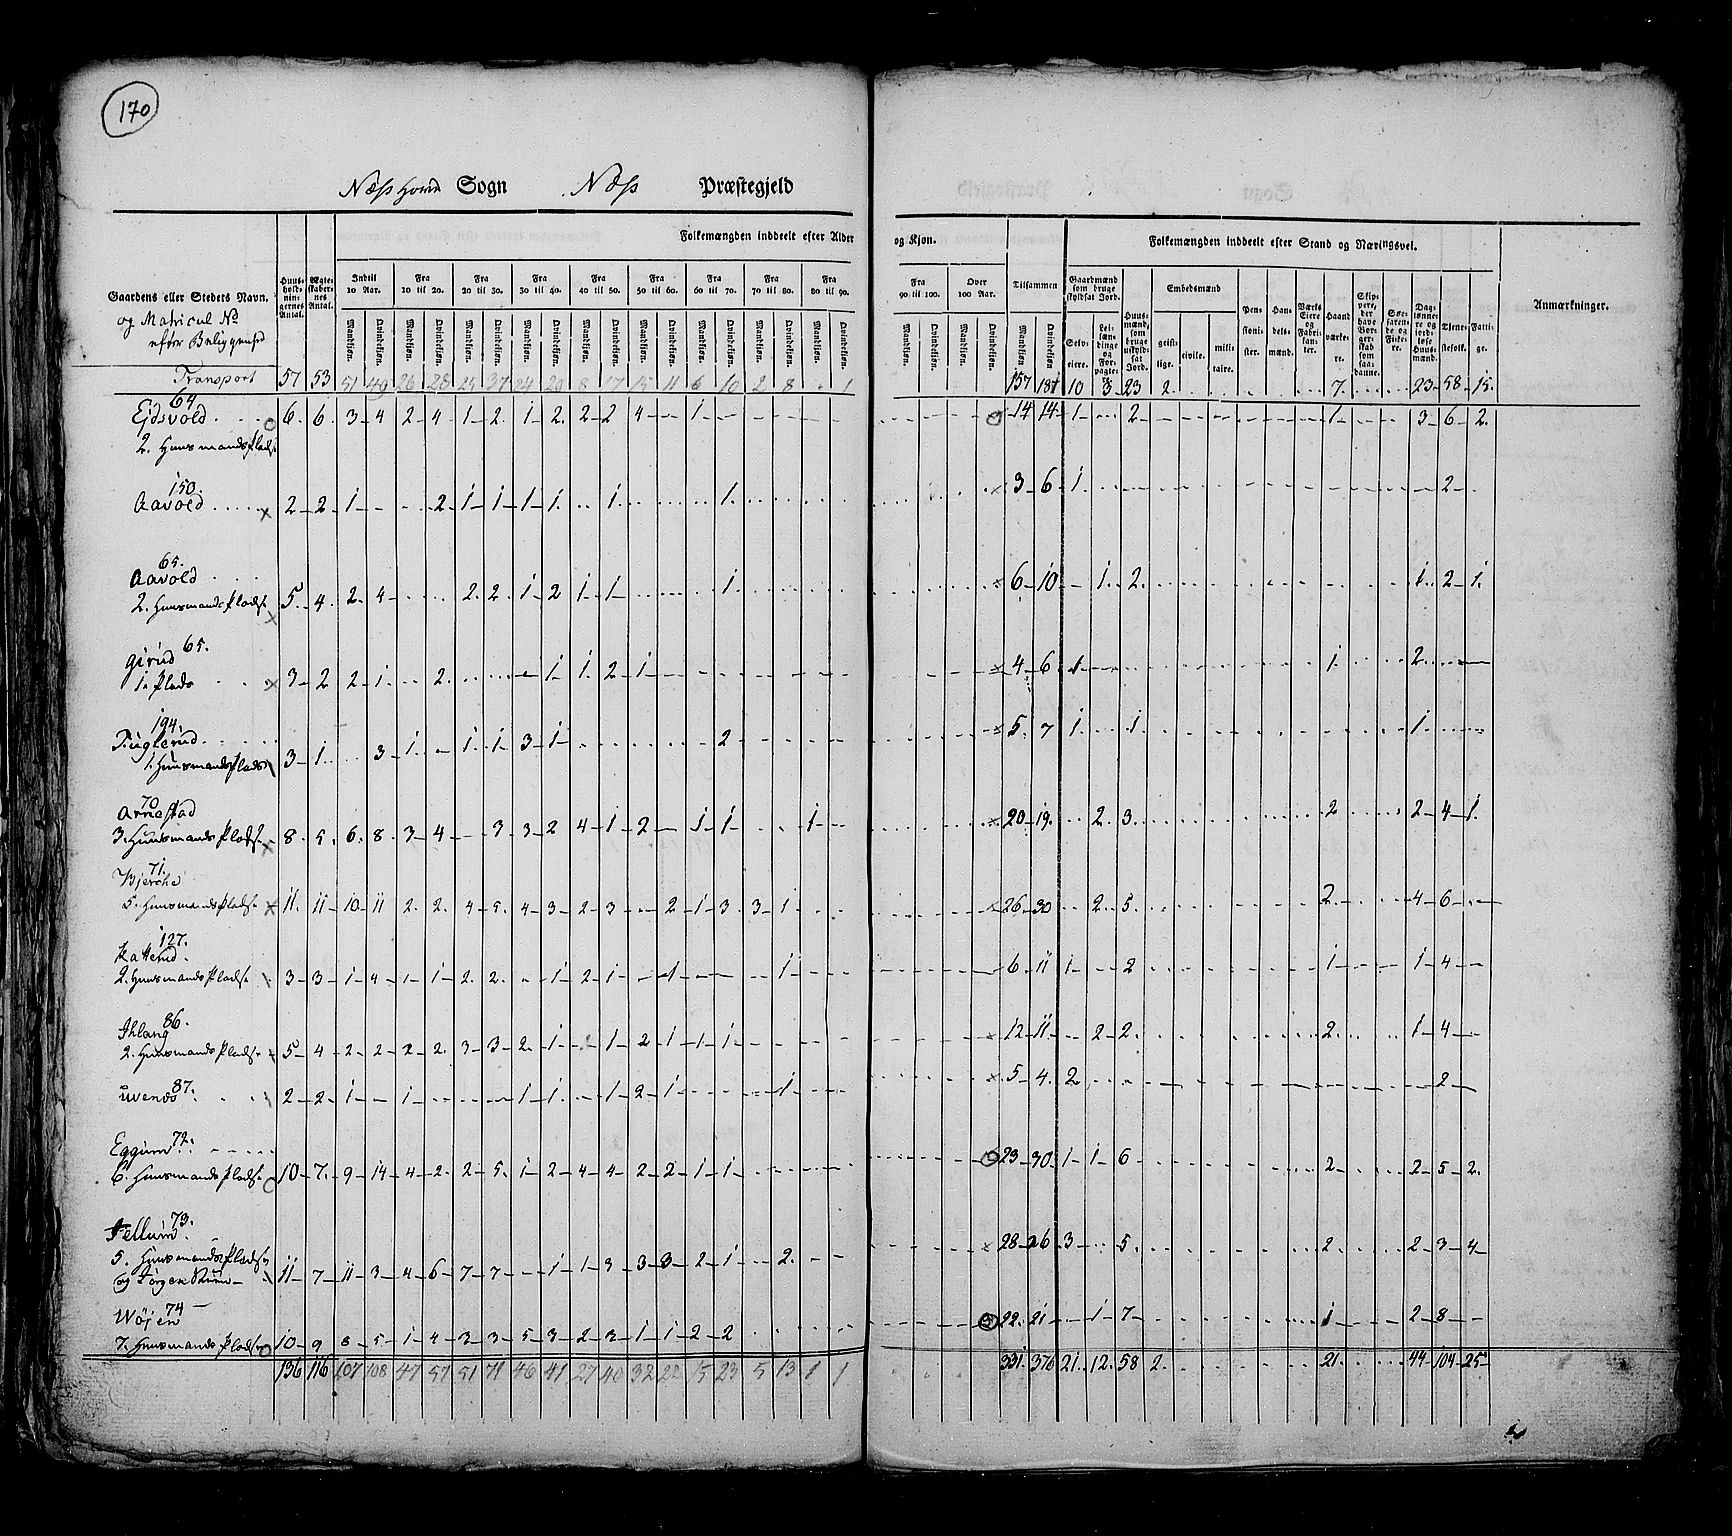 170
Næss hoved Sogn Næss Præstegjeld
Folkemængden inddeelt efter Alder og Kjøn.
Folkemængden inddeelt efter Stand og Næringsvei.
Gaardens eller Stedets Navn.
og Matricul No
efter Beliggenhed
Huus-holdningernes Antal.
Ægteskabernes Antal.
Indtil 10 Aar.
Fra 10 til 20.
Fra 20 til 30.
Fra 30 til 40.
Fra 40 til 50.
Fra 50 til 60.
Fra 60 til 70.
Fra 70 til 80.
Fra 80 til 90.
Fra 90 til 100.
Over 100 Aar.
Tilsammen
Mandkjøn. Qvindekjøn.
Gaardmænd som bruge skyldsat Jord.
Selveiere.
Leilændinge og Forpagtere.
Huusmænd, som bruge uskyldsat Jord.
Embedsmænd
geistlige. civile. militaire.
Pensionister.
Handelsmænd.
Værks Eiere og Fabrikanter.
Haandværkere.
Skippere, der have Borgerskab som saadanne.
Søefarende og Fiskere.
Daglønnere og jordløse Huusmænd.
Tjenestefolk.
Fattige.
Anmærkninger.
Transport 57 53 51 49 26 28 25 37 24 20 8 17 15 11 6 10 2 8 1 157 181 10 3 23 2 7 23 58 15
64
Ejdsvold 6 6 3 4 2 4 1 2 1 2 2 2 4 1 14 14 1 2 1 3 6 2
2. Huusmandspladse
150
Aavold 2 2 1 2 1 1 1 1 1 1 3 6 1 2
65.
Aavold
2. Huusmandspladse 5 4 2 4 2 2 1 2 1 1 1 6 10 1 2 1 2 1
Gjrud 65.
1. Plads 3 2 2 1 2 1 1 2 1 4 6 1 1 2
194.
Fuglerud 3 1 3 1 1 1 3 1 2 5 7 1 1 1
1. Huusmandsplads
70
Arnestad
3. Huusmandspladse 8 5 6 8 3 4 3 3 2 4 1 2 1 1 1 20 19 2 3 2 2 4 1
71.
Bjerche
5. Huusmandspladse 11 11 10 11 2 2 4 5 4 3 2 3 2 1 3 3 1 26 30 2 5 2 4 6
127.
Katterud
2. Huusmandspladse 3 3 1 4 1 1 2 2 1 2 1 1 1 6 11 1 2 1 1 4
Ihlang 86.
2. Huusmandspladse 5 4 2 2 2 2 3 3 2 1 1 2 1 1 1 12 11 2 2 2 1 4
87.
Uvends 2 2 1 1 1 1 1 2 1 1 5 4 2 2
Eggum 72.
6. Huusmandspladse 10 7 9 14 4 2 2 5 1 2 4 4 2 2 1 1 23 30 1 1 6 2 2 5 2
73.
Fellum
5. Huusmandspladse
og 11 7 11 3 4 6 7 7 1 1 3 3 3 2 1 2 28 26 3 5 2 2 3 4
74
Wøjen
7. Huusmandspladse 10 9 8 5 1 4 3 3 5 3 2 3 1 1 2 2 22 21 1 7 1 2 8
136 116 107 108 47 57 51 71 46 41 27 40 32 22 15 23 5 13 1 1 331 376 21 12 58 2 21 44 104 25